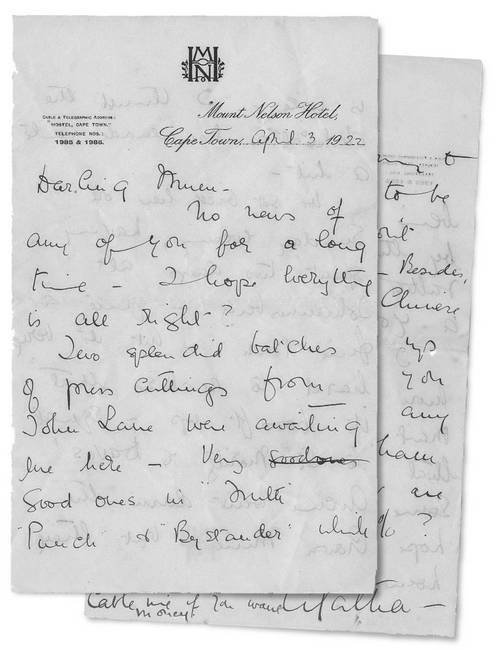 MHN
CABLE & TELEGRAPHIC ADDRESS:
"HOSTEL, CAPE TOWN."
TELEPHONE NOS.:
1985 & 1986.
Mount Nelson Hotel,
Cape Town, April 3 1922
Darling
No news of
any of you for a long
time – I hope everything
is all right?
Two splendid batches
of press cuttings from
John Lane were awaiting
me here – Very
Good ones in "Truth"
"Punch" & "Bystander" while
to
to be
Besides,
Chinese
ups
you
any
are
% ?
Cable me if you want
money.